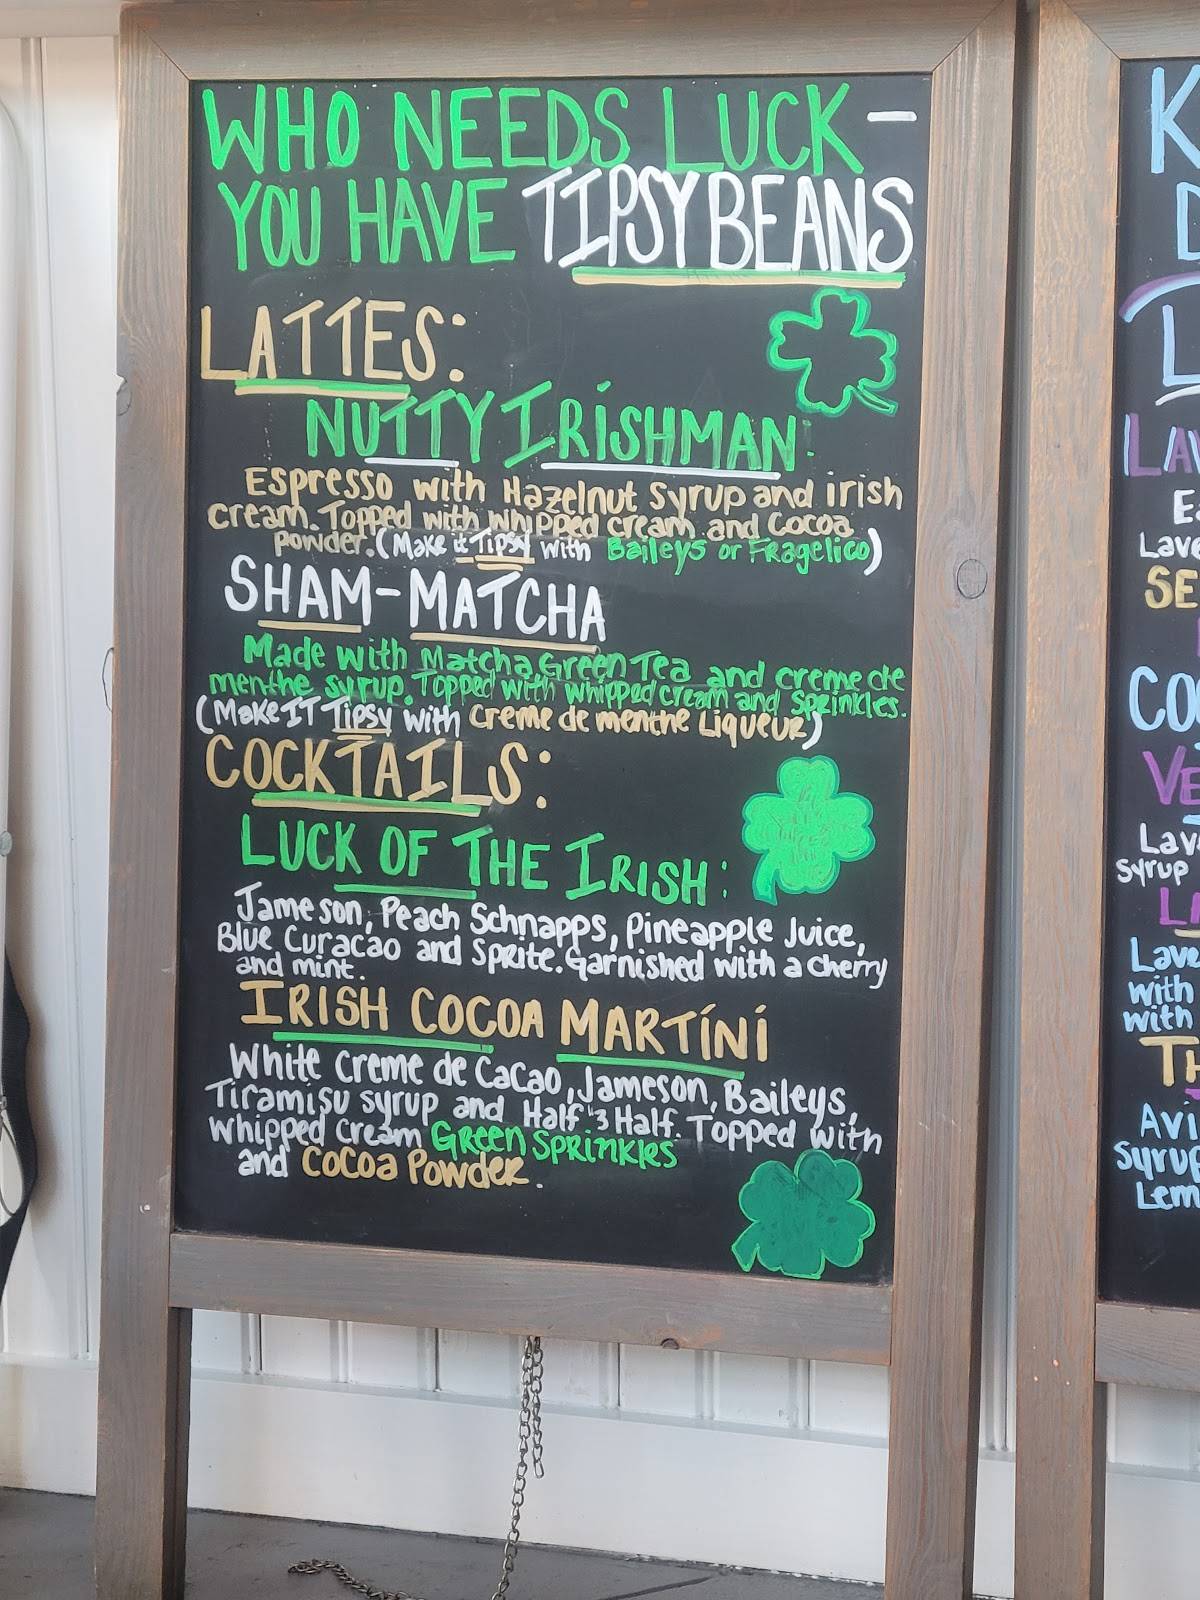 WHO NEEDS LUCK -
YOU HAVE TIPSY BEANS
LATTES:
NUTTY IRISHMAN:
Espresso with Hazelnut Syrup and irish
cream. Topped with whipped cream and Cocoa
powder. (Make it Tipsy with Baileys or Fragelico)
SHAM-MATCHA
Made with Matcha Green Tea and creme de
menthe syrup. Topped with whipped cream and Sprinkles.
(Make IT Tipsy with Creme de menthe Liqueur)
COCKTAILS:
LUCK OF THE IRISH:
Jameson, Peach Schnapps, Pineapple Juice,
Blue Curacao and Sprite. Garnished with a cherry
and mint.
IRISH COCOA MARTINI
White Creme de Cacao, Jameson, Baileys,
Tiramisu syrup and Half & Half. Topped with
whipped cream Green Sprinkles
and Cocoa Powder.
K
D
L
LAV
E
Lave
SE
CO
VE
Lav
syrup
LA
Lave
with
with
TH
Avi
syrup
Lem